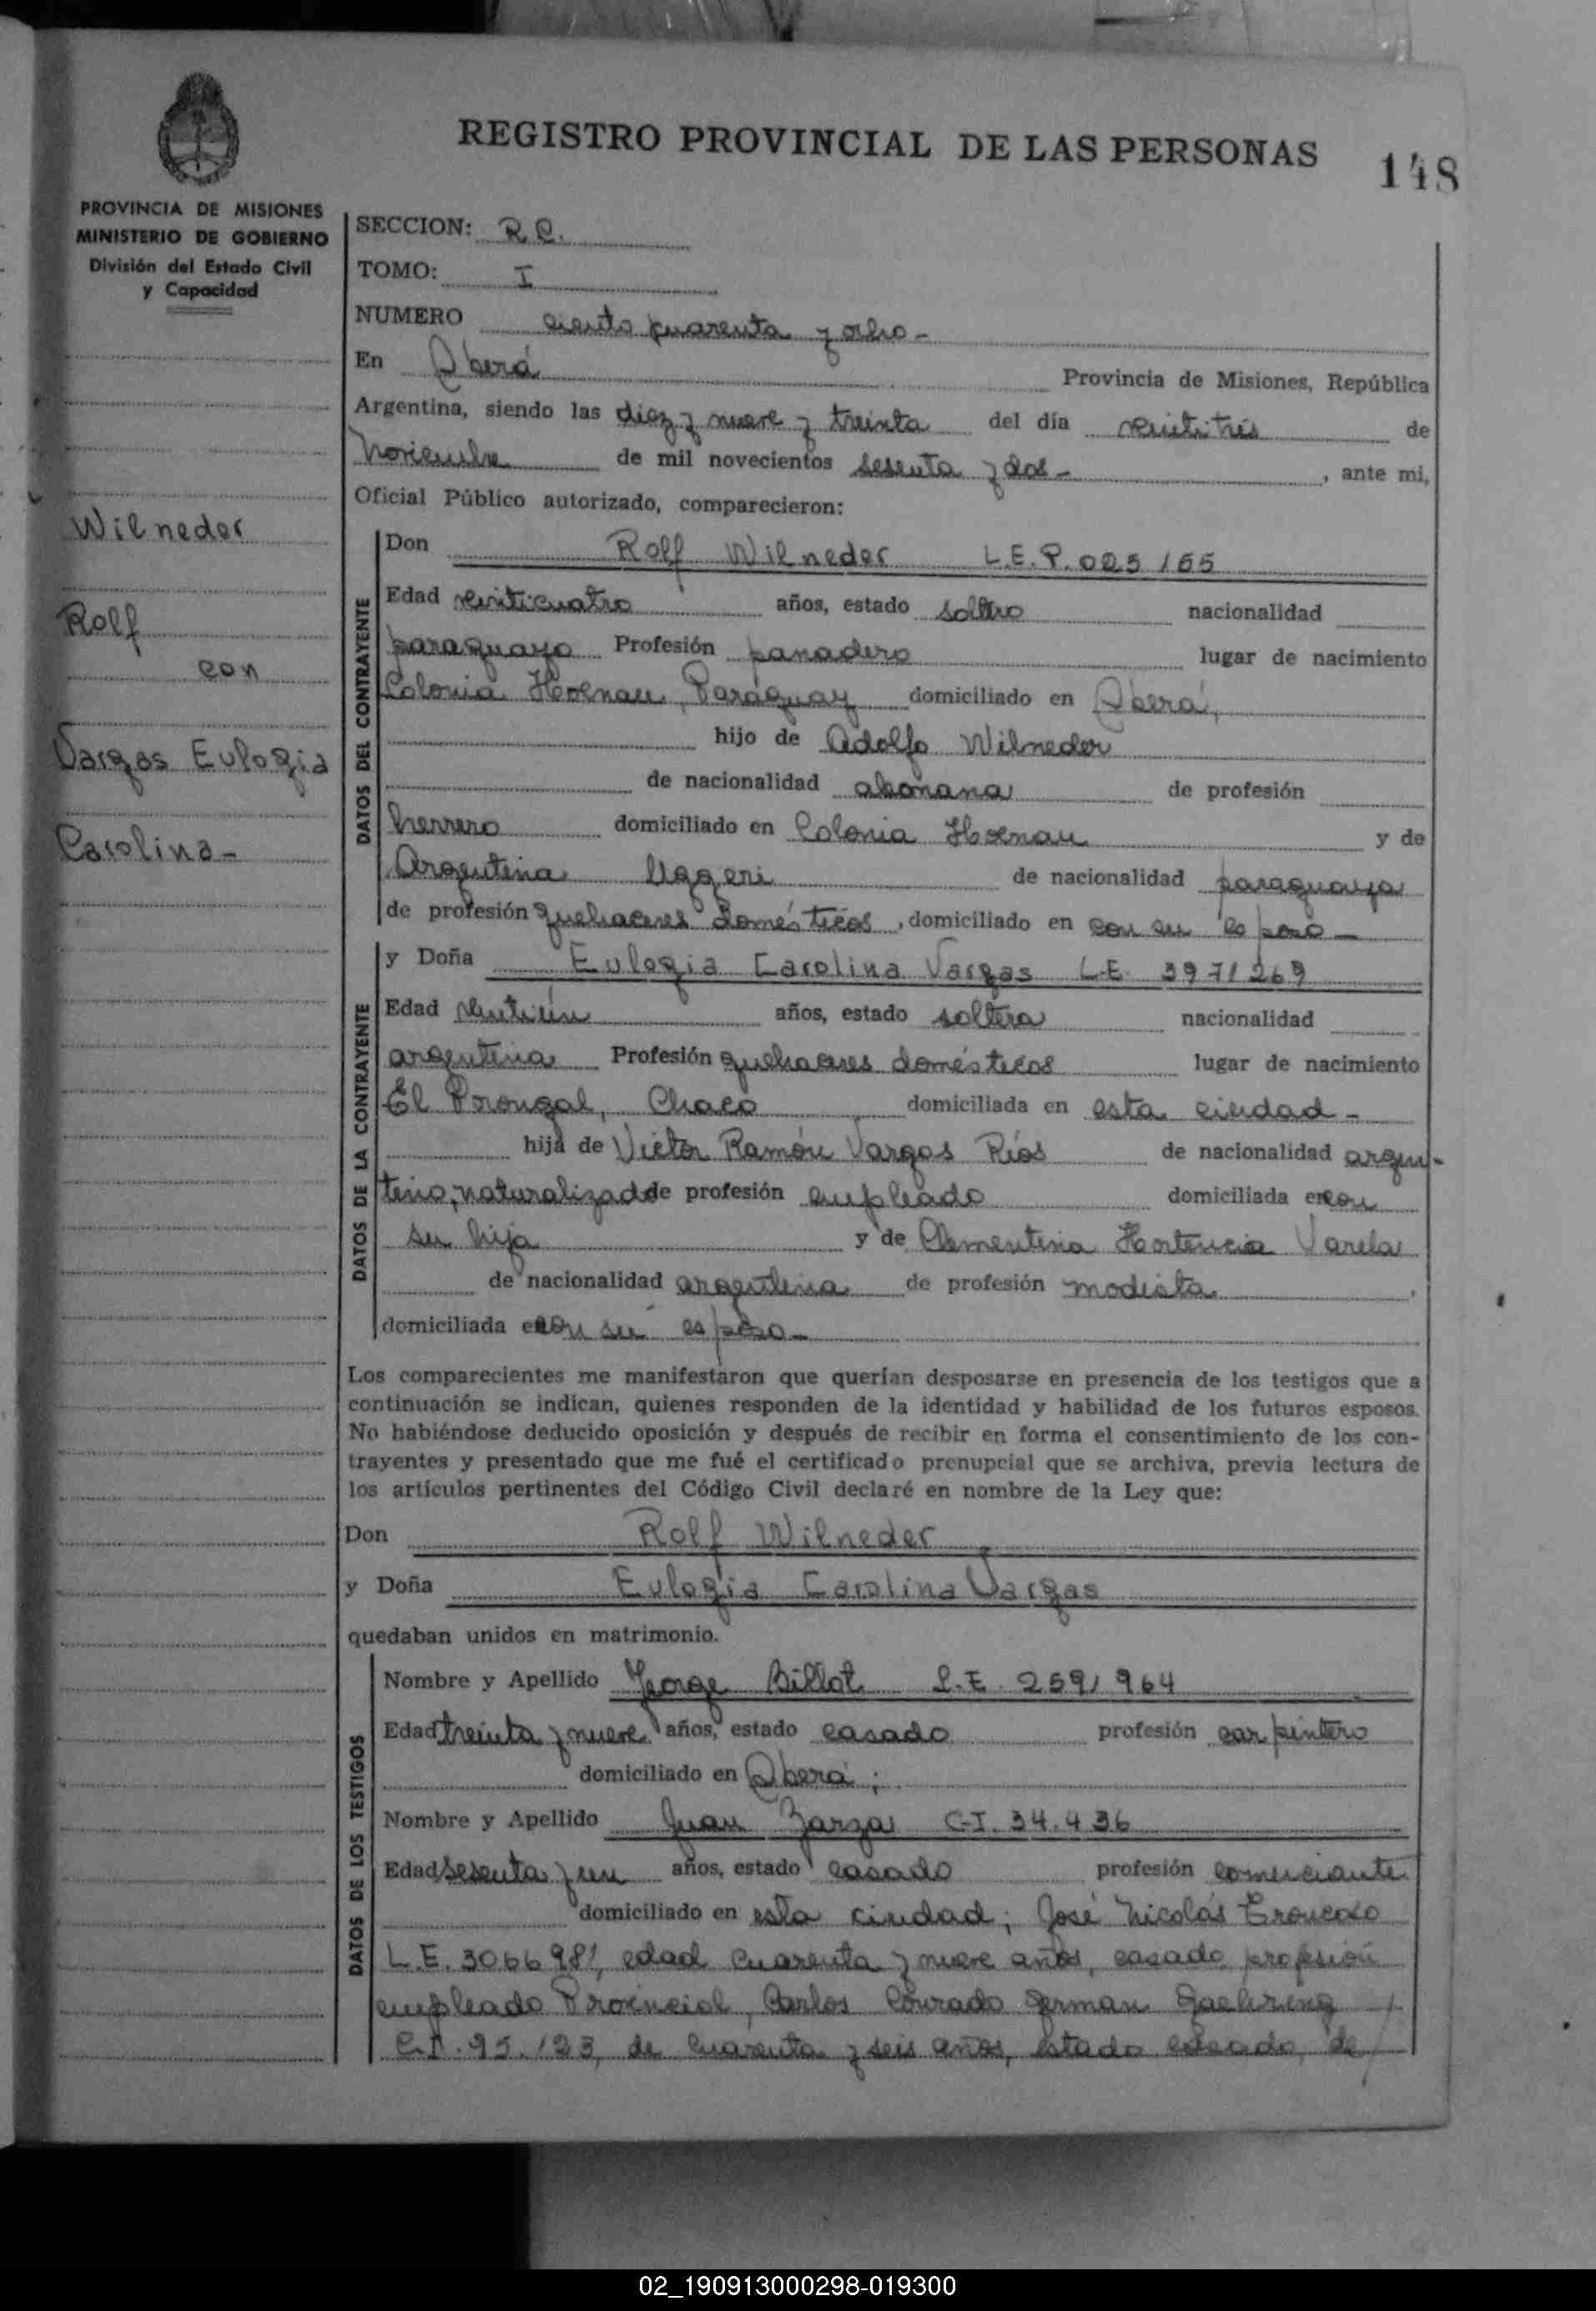 REGISTRO PROVINCIAL DE LAS PERSONAS
148
PROVINCIA DE MISIONES
MINISTERIO DE GOBIERNO
División del Estado Civil
y Capacidad
Wilneder
Rolf
con
Vargas Eulogia
Carolina-
SECCION: R.C.
TOMO: I
NUMERO ciento cuarenta y ocho-
En Oberá Provincia de Misiones, República
Argentina, siendo las diez y nueve y treinta del día veintitrés de
noviembre de mil novecientos sesenta y dos- , ante mi,
Oficial Público autorizado, comparecieron:
DATOS DEL CONTRAYENTE
Don Rolf Wilneder L.E.P. 025155
Edad veinticuatro años, estado soltero nacionalidad
paraguayo Profesión panadero lugar de nacimiento
Colonia Hoenau, Paraguay domiciliado en Oberá,
hijo de Adolfo Wilneder
de nacionalidad alemana de profesión
herrero domiciliado en Colonia Hoenau y de
Argentina de nacionalidad paraguaya
de profesión quehaceres domésticos, domiciliado en con su esposo-
DATOS DE LA CONTRAYENTE
y Doña Eulogia Carolina Vargas L.E. 3971269
Edad veintiún años, estado soltera nacionalidad
argentina Profesión quehaceres domésticos lugar de nacimiento
El Chaco domiciliada en esta ciudad-
hija de Victor Ramón Vargas Ríos de nacionalidad argen-
tino, naturalizado de profesión empleado domiciliada en con
su hija y de Clementina Hortencia Varela
de nacionalidad argentina de profesión modista,
domiciliada en con su esposo-
Los comparecientes me manifestaron que querían desposarse en presencia de los testigos que a
continuación se indican, quienes responden de la identidad y habilidad de los futuros esposos.
No habiéndose deducido oposición y después de recibir en forma el consentimiento de los con-
trayentes y presentado que me fué el certificado prenupcial que se archiva, previa lectura de
los artículos pertinentes del Código Civil declaré en nombre de la Ley que:
Don Rolf Wilneder
y Doña Eulogia Carolina Vargas
quedaban unidos en matrimonio.
DATOS DE LOS TESTIGOS
Nombre y Apellido Jorge Billot L.E. 2591964
Edad treinta y nueve años, estado casado profesión carpintero
domiciliado en Oberá;
Nombre y Apellido Juan Zarza C.I. 34.436
Edad sesenta y un años, estado casado profesión comerciante
domiciliado en esta ciudad; José Nicolás Troncoso
L.E. 3066981, edad cuarenta y nueve años, casado, profesión
empleado Provincial, Carlos Conrado German
C.I. 95.123, de cuarenta y seis años, estado casado, de
02_190913000298-019300